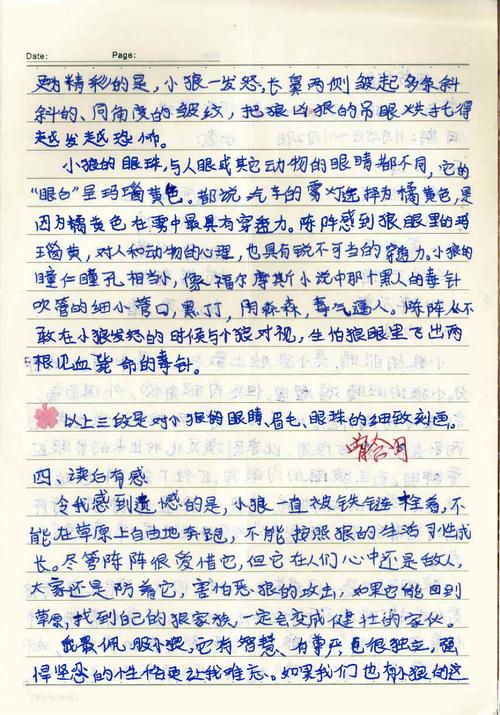 Date: Page:
更为精彩的是，小狼一发怒，长鼻两侧皱起多条斜
斜的、同角度的皱纹，把狼凶狠的吊眼烘托得
越发越恐怖。
小狼的眼珠，与人眼或其它动物的眼睛都不同，它的
“眼白”呈玛瑙黄色。都说汽车的雾灯选择为橘黄色，是
因为橘黄色在雾中最具有穿透力。陈阵感到狼眼里的玛
瑙黄，对人和动物的心理，也具有锐不可当的穿透力。小狼的
瞳仁瞳孔相当小，像福尔摩斯小说中那个黑人的毒针
吹管的细小管口，黑丁丁，阴森森，毒气逼人。陈阵从不
敢在小狼发怒的时候与小狼对视，生怕狼眼里飞出两
根见血毙命的毒针。
以上三段是对小狼的眼睛、眉毛、眼珠的细致刻画。
四、读后有感
令我感到遗憾的是，小狼一直被铁链拴着，不
能在草原上自由地奔跑，不能按照狼的生活习性成
长。尽管陈阵很爱惜它，但它在人们心中还是敌人，
大家还是防着它，害怕恶狼的攻击，如果它能回到
草原，找到自己的狼家族，一定会变成健壮的家伙。
我最佩服小狼，它有智慧、有尊严，也很独立，强
悍坚忍的性格更让我难忘。如果我们也有小狼的这